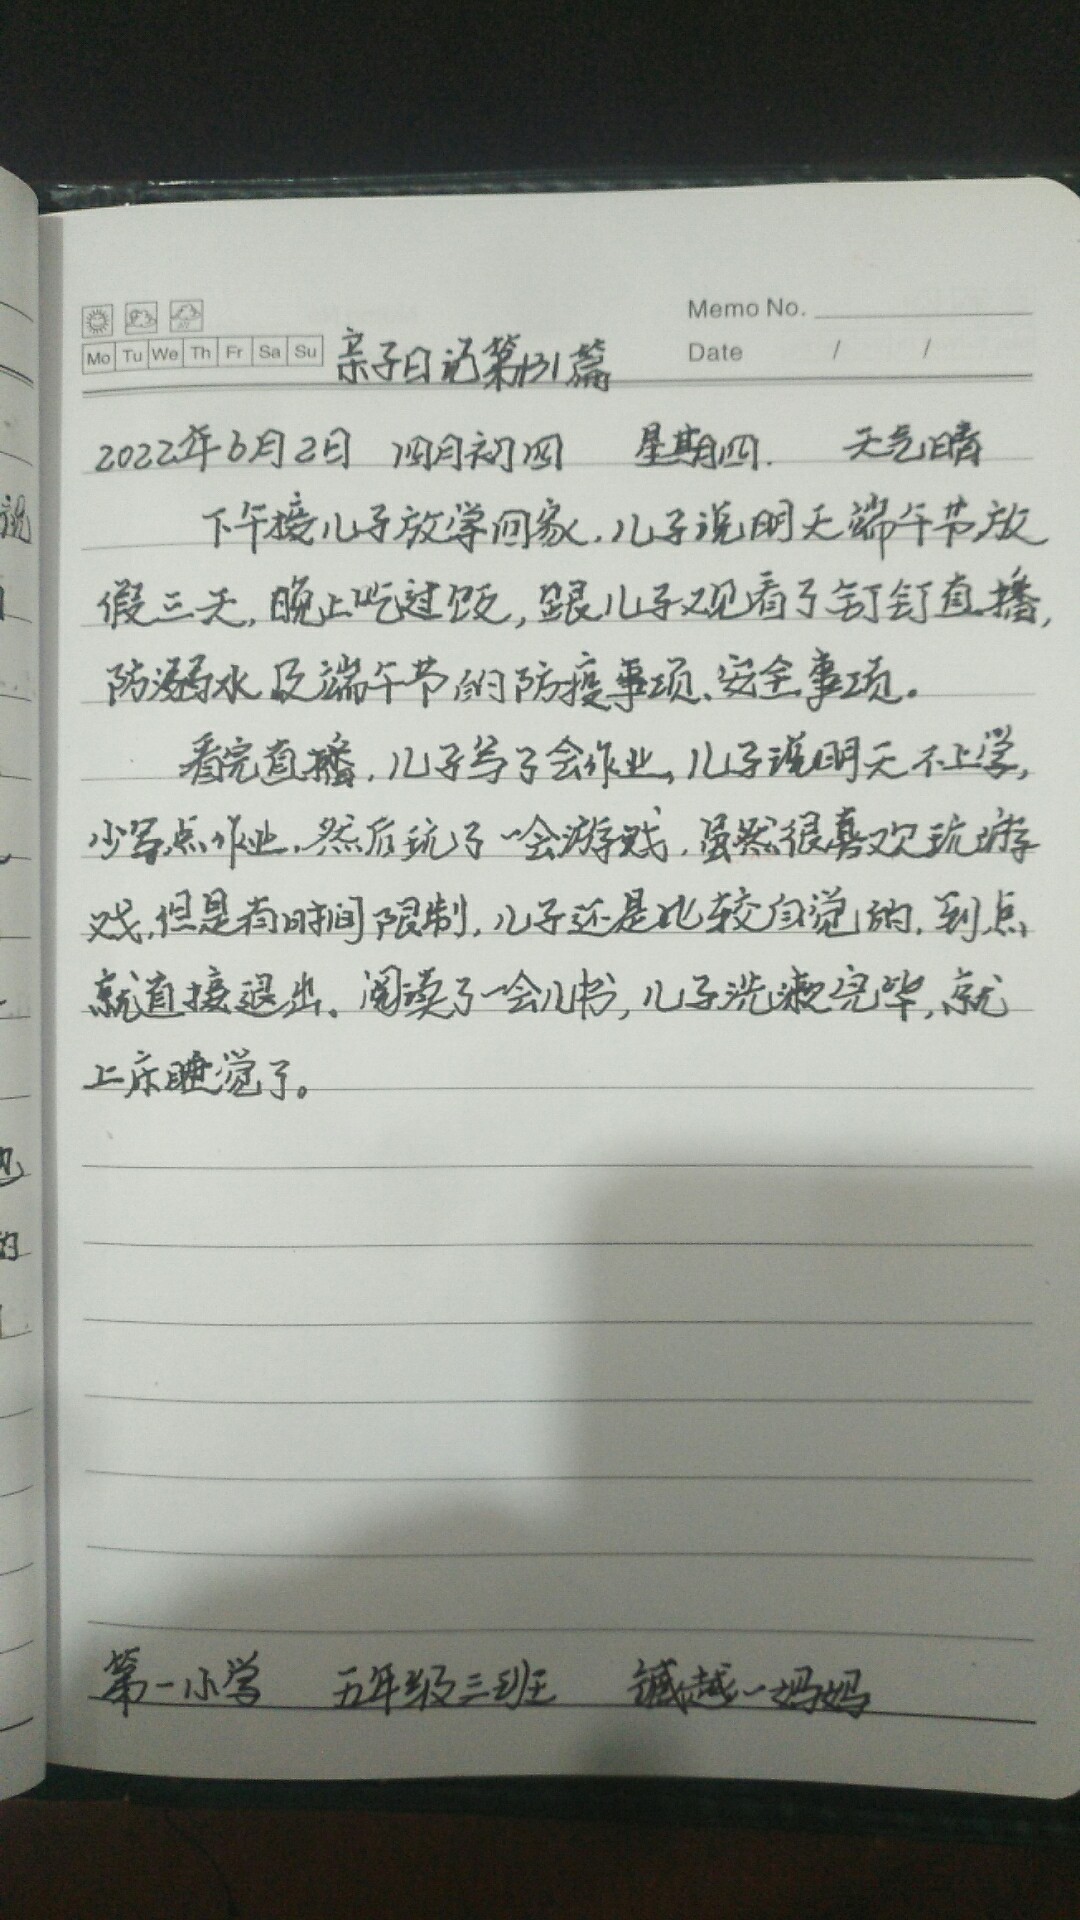 Memo No.
Mo Tu We Th Fr Sa Su
Date / /
亲子日记第131篇
2022年6月2日 四月初四 星期四. 天气晴
下午接儿子放学回家,儿子说明天端午节放
假三天,晚上吃过饭,跟儿子观看了钉钉直播,
防溺水及端午节的防疫事项、安全事项。
看完直播,儿子写了会作业,儿子说明天不上学,
少写点作业,然后玩了一会游戏,虽然很喜欢玩游
戏,但是有时间限制,儿子还是比较自觉的,到点
就直接退出、阅读了一会儿书,儿子洗漱完毕,就
上床睡觉了。
第一小学 五年级三班 越一妈妈